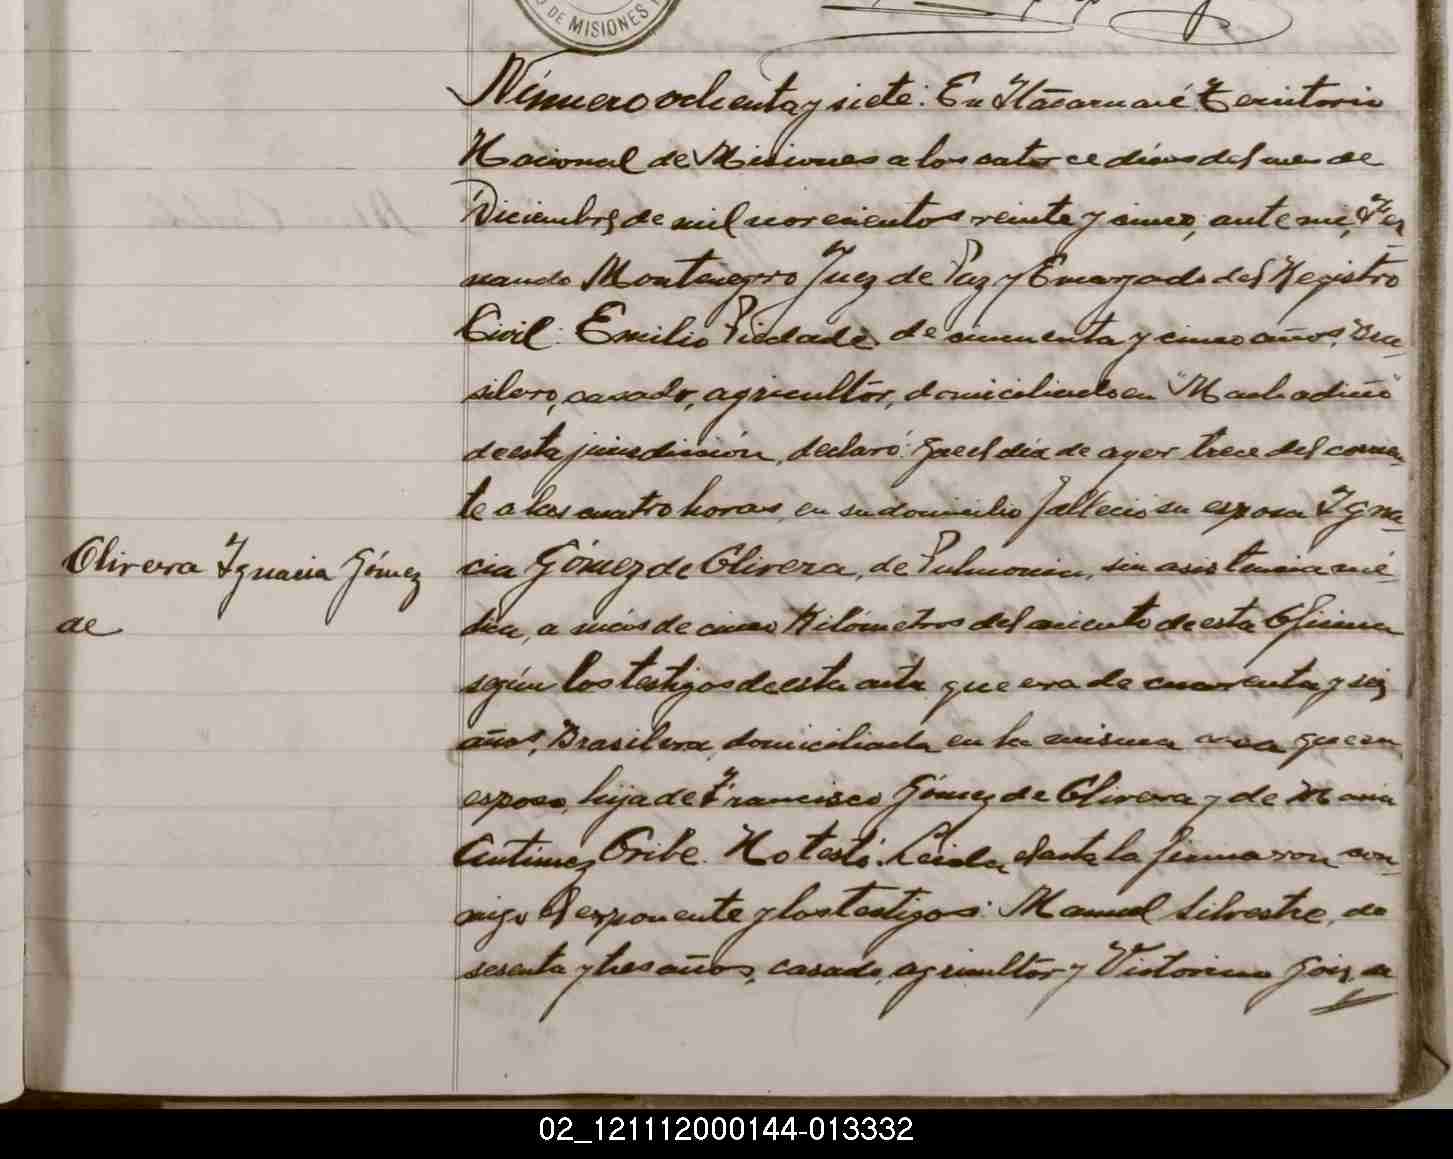 O DE MISIONES
Número ochenta y siete: En Itacaruaré Territorio
Nacional de Misiones a los catorce días del mes de
Diciembre de mil novecientos veinte y cinco, ante mi, Fer
nando Montenegro Juez de Paz y Encargado del Registro
Civil: Emilio Piedade de cincuenta y cinco años, Bra-
silero, casado, agricultor, domiciliado en "Machadiño"
de esta jurisdicción, declaró: Que el día de ayer trece del corrien-
te a las cuatro horas, en su domicilio falleció su esposa Igna-
Olivera Ignacia Gómez
de
cia Gómez de Olivera, de Pulmonia, sin asistencia mé-
dica, a más de cinco Kilómetros del asiento de esta Oficina
según los testigos de esta acta que era de cuarenta y seis
años, Brasilera, domiciliada en la misma casa que su
esposo, hija de Francisco Gómez de Olivera y de Maria
Antimez Oribe. No testó. Leida el acta la firmaron con-
migo el exponente y los testigos: Manuel Silvestre, de
sesenta y tres años, casado, agricultor y Victorino Gois, de
02_121112000144-013332